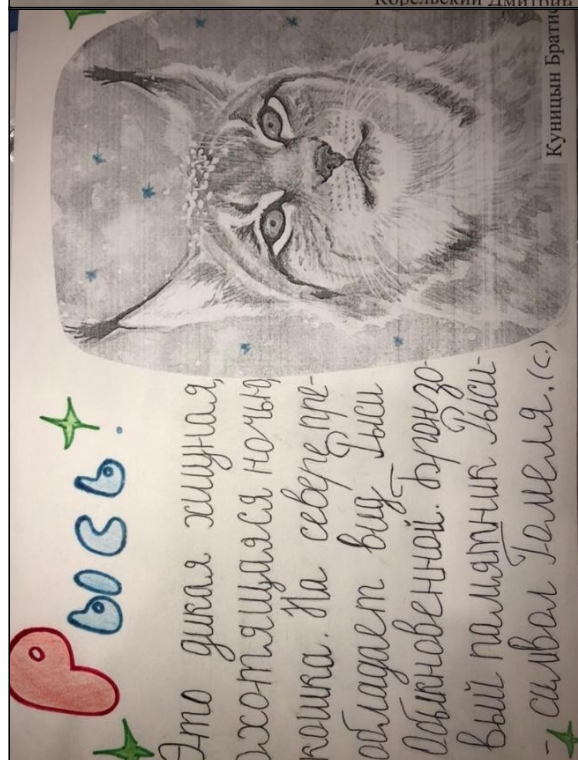 Корельский Дмитрий
Рысь.
Это дикая хищная,
охотящаяся ночью,
кошка. На севере пре-
обладает вид Рыси
Обыкновенной. Бронзо-
вый памятник Рыси-
- символ Гомеля. (с.)
Куницын Братис